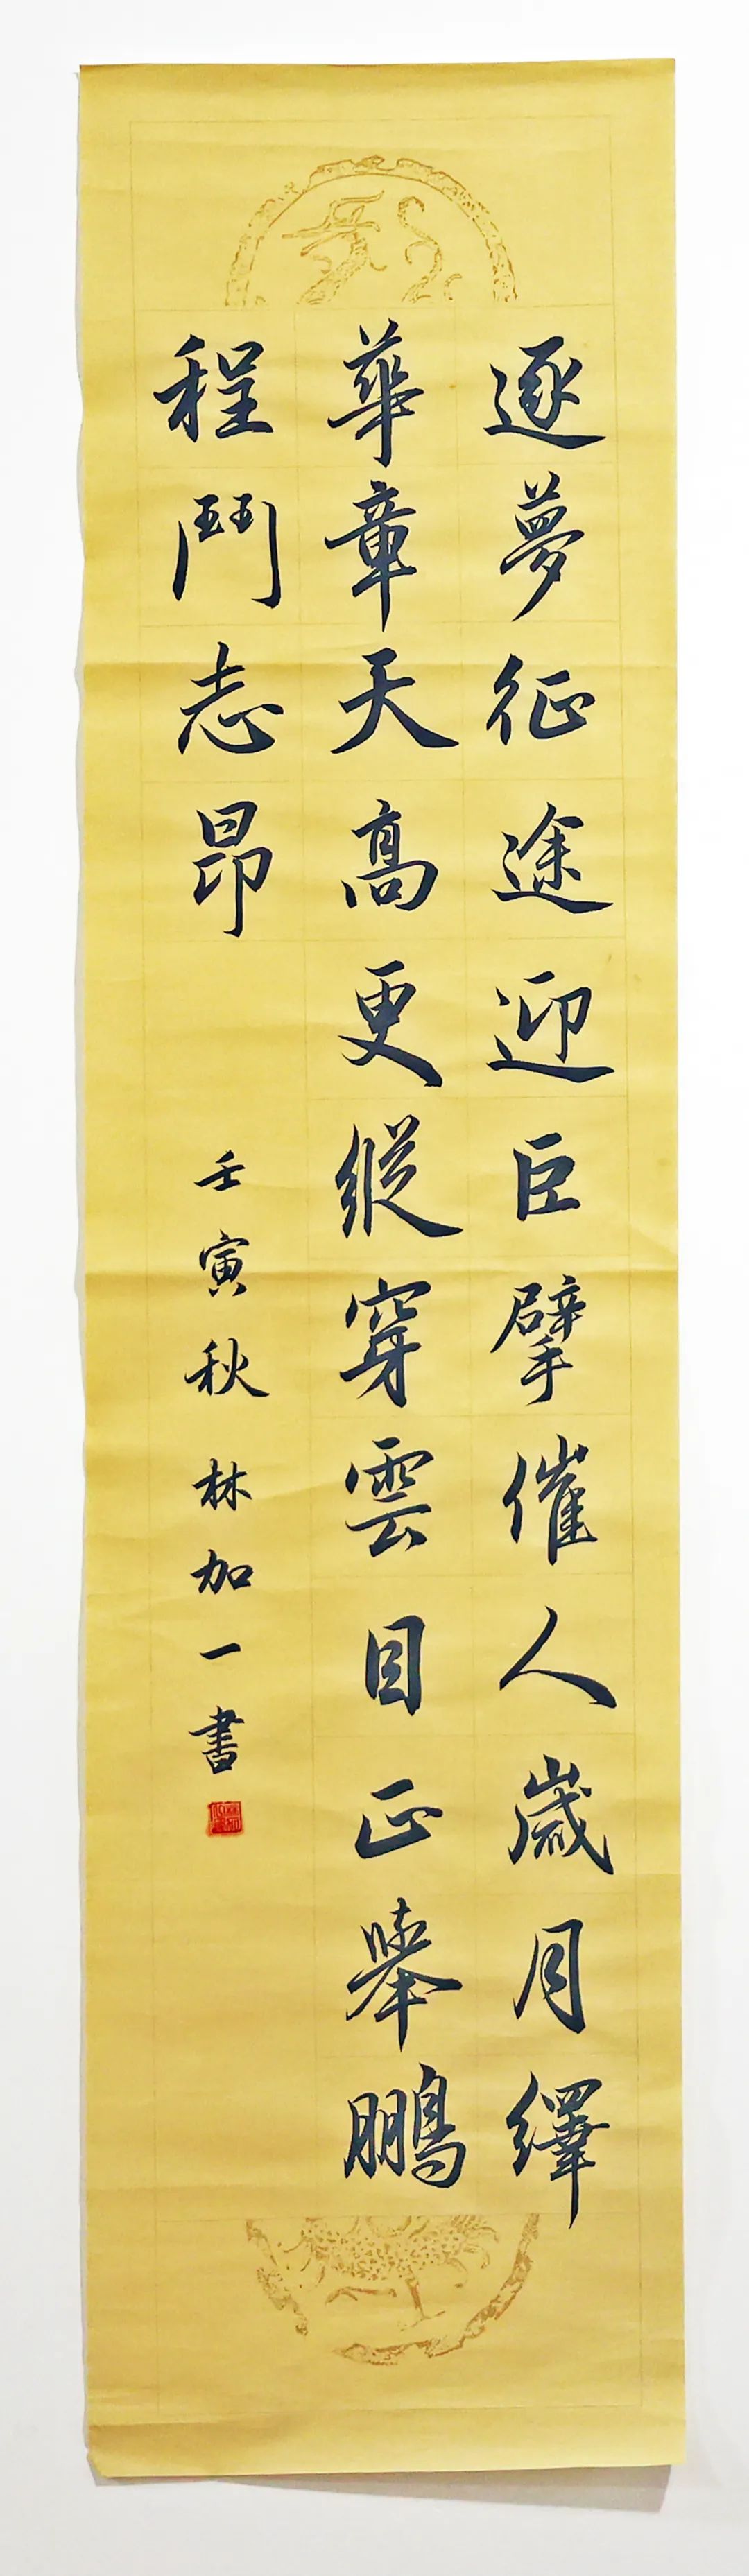 逐夢征途迎臣擘催人歲月繹
華章天高更縱穿雲目正舉鵬
程鬥志昂
壬寅秋林加一書